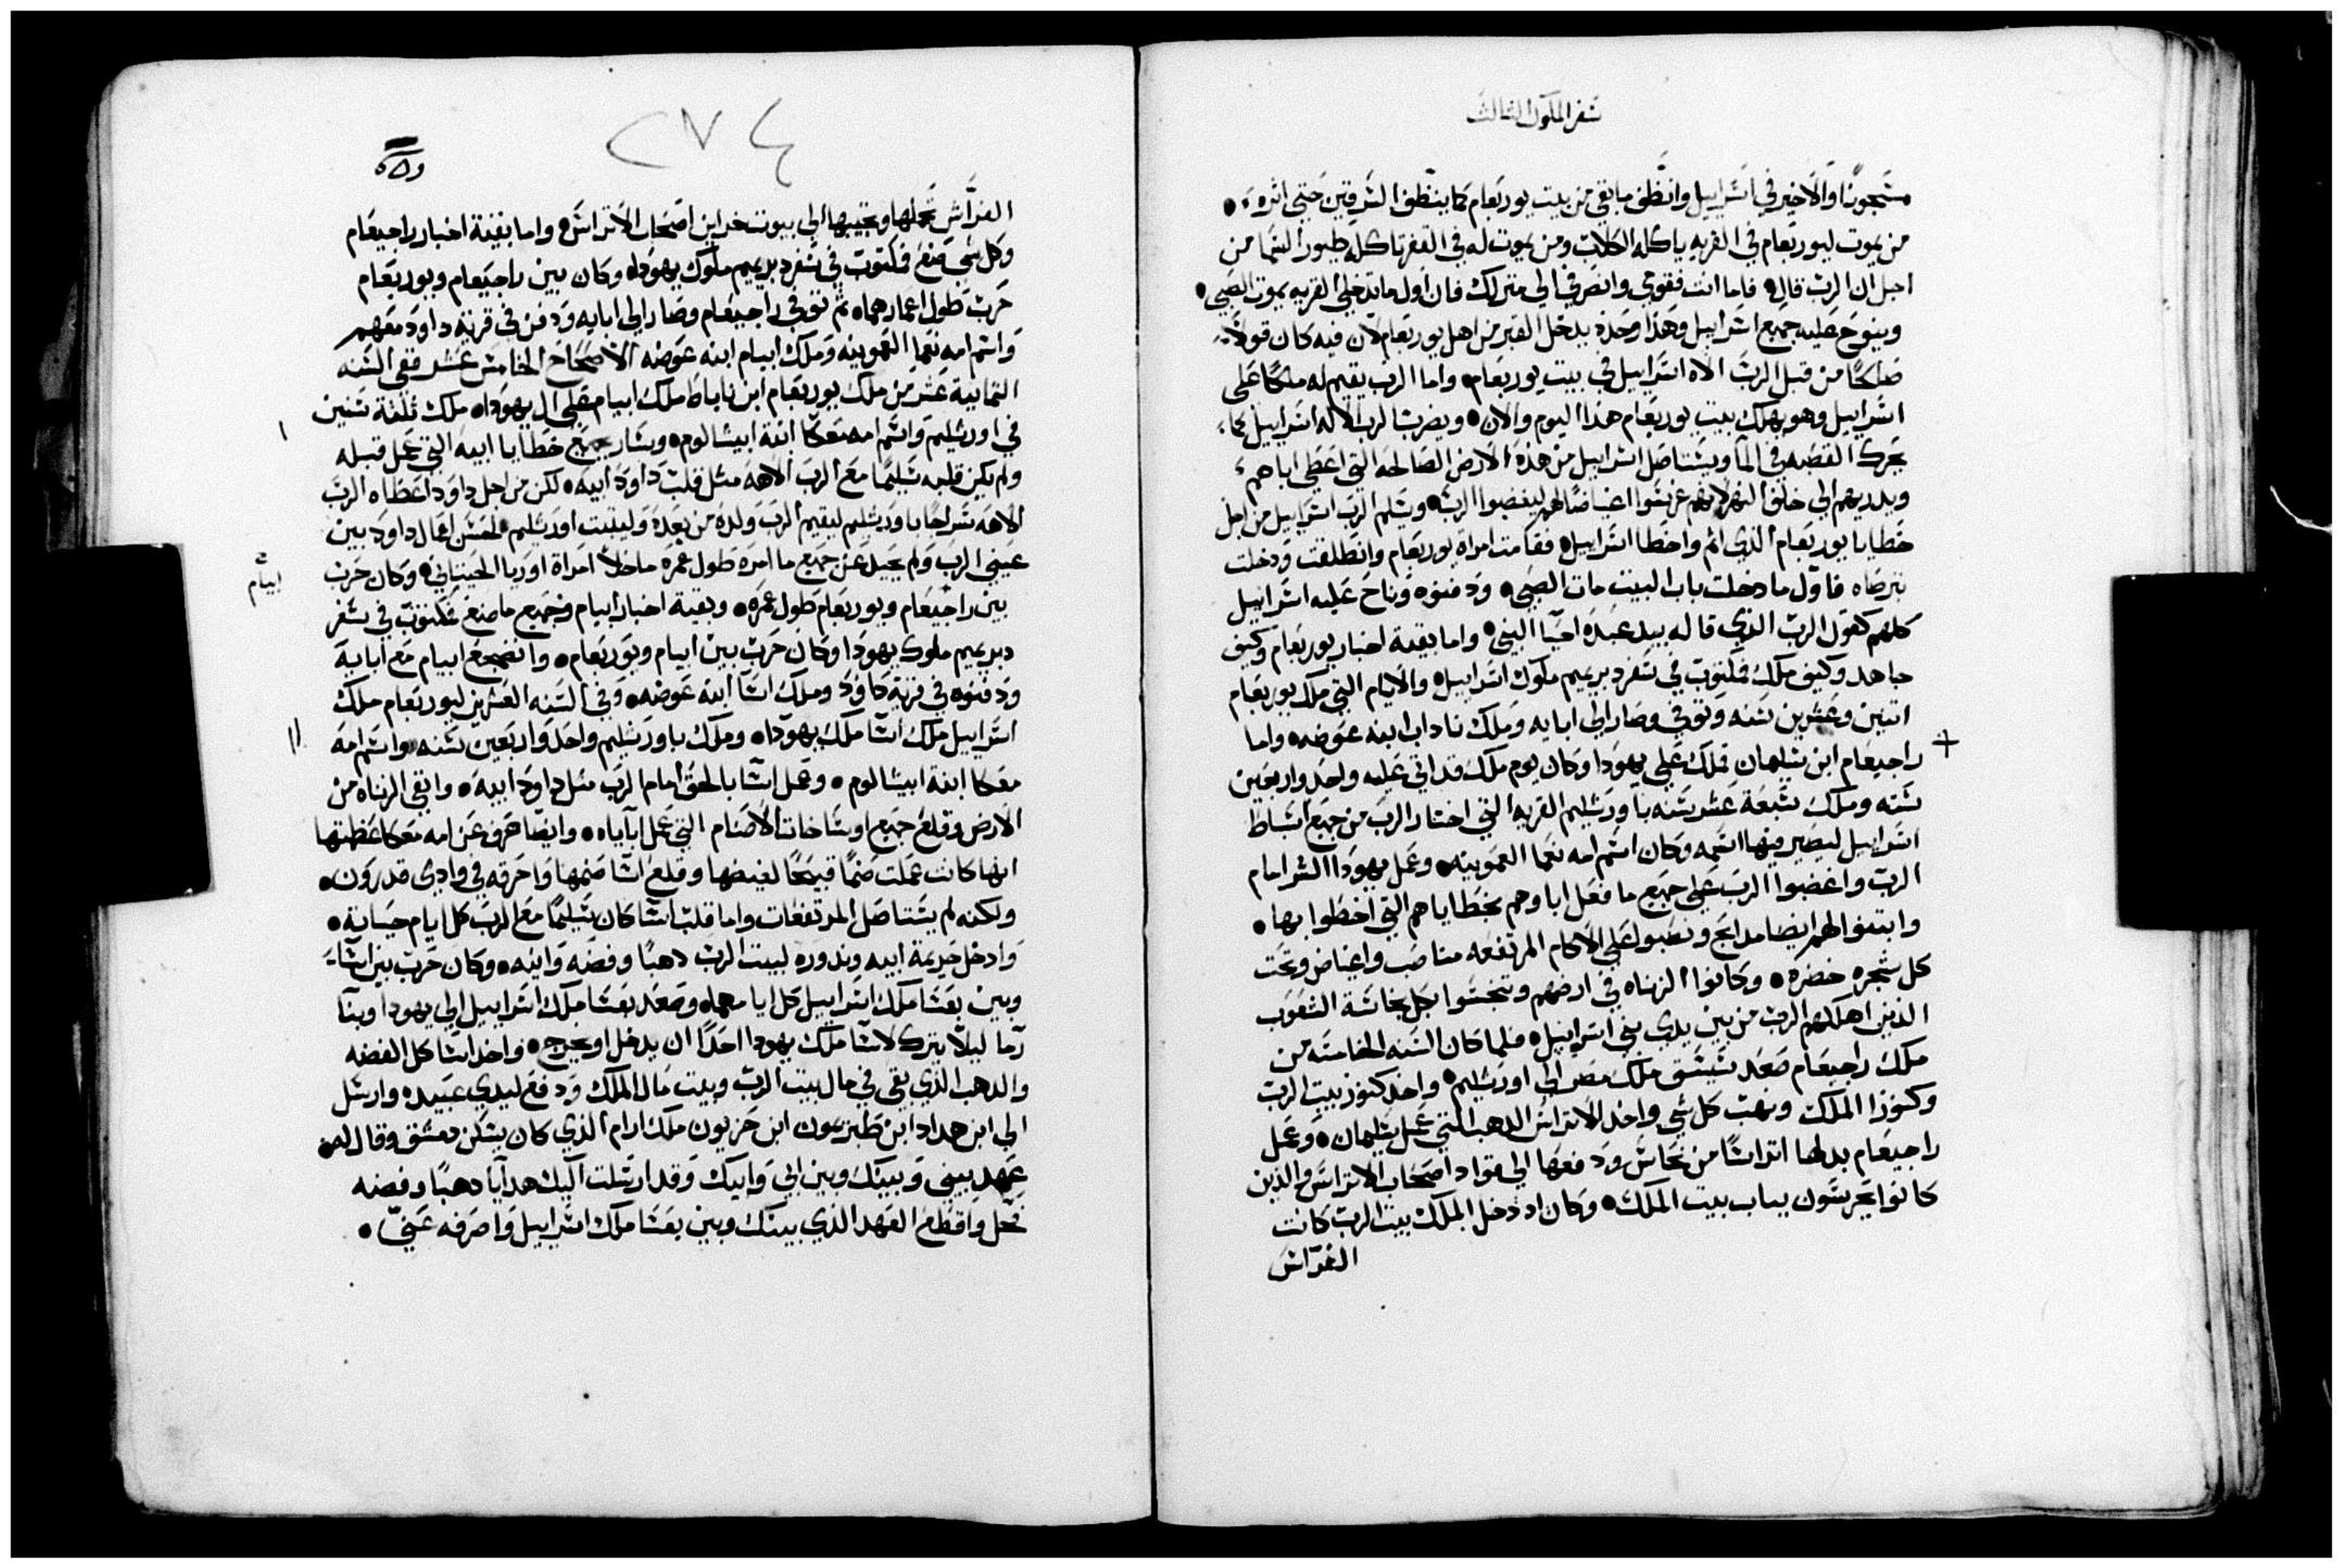 سفر الملوك الثالث
مسجونًا والاخير في اسراييل وانظف ما بقي من بيت يوربعام كما ينظف السرقين حتي اثره
من يموت ليوربعام في القريه ياكله الكلاب ومن يموت له في القفر تاكله طيور السما من
اجل ان الرب قال فاما انت فقومي وانصرفي الي منزلك فان اول ما تدخلي القريه يموت الصبي
وينوح عليه جميع اسراييل وهذا وحده يدخل القبر من اهل يوربعام لان فيه كان قولاً
صالحًا من قبل الرب الاه اسراييل في بيت يوربعام واما الرب يقيم له ملكًا علي
اسراييل وهو يهلك بيت يوربعام هذا اليوم والان ويضرب الرب الاله اسراييل كما
يحرك القصبه في الما ويستاصل اسراييل من هذه الارض الصالحه التي اعطي اباهم
ويدريهم الي خلف النهر لانهم غرسوا اغياضًا لهم ليغضبوا الرب ويسلم الرب اسراييل من اجل
خطايا يوربعام الذي اثم واخطا اسراييل فقامت امراة يوربعام وانطلقت ودخلت
ترصاه فاول ما دخلت باب البيت مات الصبي ودفنوه وناح عليه اسراييل
كلهم كقول الرب الذي قاله بيد عبده احيا النبي واما بقية اخبار يوربعام وكيف
جاهد وكيف ملك فمكتوب في سفر دبريميم ملوك اسراييل والايام التي ملك يوربعام
اتنين وعشرين سنه وتوفي وصار الي ابايه وملك ناداب ابنه عوضه واما
راجيعام ابن سليمان فملك علي يهودا وكان يوم ملك قد اتي عليه واحد واربعين
سنه وملك سبعة عشر سنه باورشليم القريه التي اختار الرب من جميع اسباط
اسراييل ليصير فيها اسمه وكان اسم امه نعما العمونيه وعمل يهودا الشر امام
الرب واغضبوا الرب علي جميع ما فعل اباوهم بخطاياهم التي اخطوا بها
وابتنوا لهم ايضا مدابح ونصبوا علي الاكام المرتفعه مناصب واغياض وتحت
كل شجره خضره وكانوا الزناه في ارضهم وتنجسوا بكل نجاسة الشعوب
الذين اهلكهم الرب من بين يدي بني اسراييل فلما كان السنه الخامسه من
ملك راجيعام صعد سيسق ملك مصر الي اورشليم واخذ كنوز بيت الرب
وكنوز الملك ونهب كل شي واخذ الاتراس الدهب التي عمل سليمان وعمل
راجيعام بدلها اتراسًا من نحاس ودفعها الي قواد اصحاب الاتراس الذين
كانوا يحرسون بباب بيت الملك وكان اد دخل الملك بيت الرب كانت
الفراس
٢٧٤
الفراس تحملها وتجيبها الي بيوت خداين اصحاب الاتراس واما بقية اخبار راجيعام
وكل شي صنع فمكتوب في سفر دبريميم ملوك يهودا وكان بين راجيعام ويوربعام
حرب طول اعمارهما ثم توفي راجيعام وصار الي ابايه ودفن في قرية داود معهم
واسم امه نعما العمونيه وملك ابيام ابنه عوضه الاصحاح الخامس عشر ففي السنه
الثمانية عشر من ملك يوربعام ابن ناباط ملك ابيام علي ال يهودا ملك ثلثة سنين
في اورشليم واسم امه معكا ابنة ابيشالوم وسار بجميع خطايا ابيه التي عمل قبله
ولم يكن قلبه سليمًا مع الرب الاهه مثل قلب داود ابيه لكن من اجل داود اعطاه الرب
الاهه سراجًا باورشليم ليقيم الرب ولده من بعده وليثبت اورشليم لحسن اعمال داود بين
عيني الرب ولم يحيد عن جميع ما امره طول عمره ما خلا امراة اوريا الحيتاني وكان حرب
ابيام
بين راجيعام ويوربعام طول عمره وبقية اخبار ابيام وجميع ما صنع مكتوب في سفر
دبريميم ملوك يهودا وكان حرب بين ابيام ويوربعام وانضجع ابيام مع ابايه
ودفنوه في قرية داود وملك اسا ابنه عوضه وفي السنه العشرين ليوربعام ملك
اسراييل ملك اسا ملك يهودا وملك باورشليم واحد واربعين سنه واسم امه
معكا ابنة ابيشالوم وعمل اسا بالحق امام الرب مثل داود ابيه وانقي الزناه من
الارض وقلع جميع اوساخات الاصنام التي عمل اباياه وايضًا صرف عن امه معكا عظمتها
انها كانت عملت صنمًا قبيحًا لغيضها وقلع اسا صنمها واحرقه في وادي قدرون
ولكنه لم يستاصل المرتفعات واما قلب اسا كان سليمًا مع الرب كل ايام حياته
وادخل خديمة ابيه وندوره لبيت الرب دهبًا وفضه وانيه وكان حرب بين اسا
وبين بعشا ملك اسراييل كل ايامهما وصعد بعشا ملك اسراييل الي يهودا وبنا
رما ليلا يترك لاسا ملك يهودا احدًا ان يدخل او يخرج واخذ اسا كل الفضه
والدهب الذي بقي في مال بيت الرب وبيت مال الملك ودفع ليدي عبيده وارسل
الي ابن هداد ابن طبريمون ابن حزيون ملك ارام الذي كان يسكن دمشق وقال له
عهد بيني وبينك وبين ابي وابيك وقد ارسلت اليك هدايا دهبًا وفضه
فحل واقطع العهد الذي بينك وبين بعشا ملك اسراييل واصرفه عني